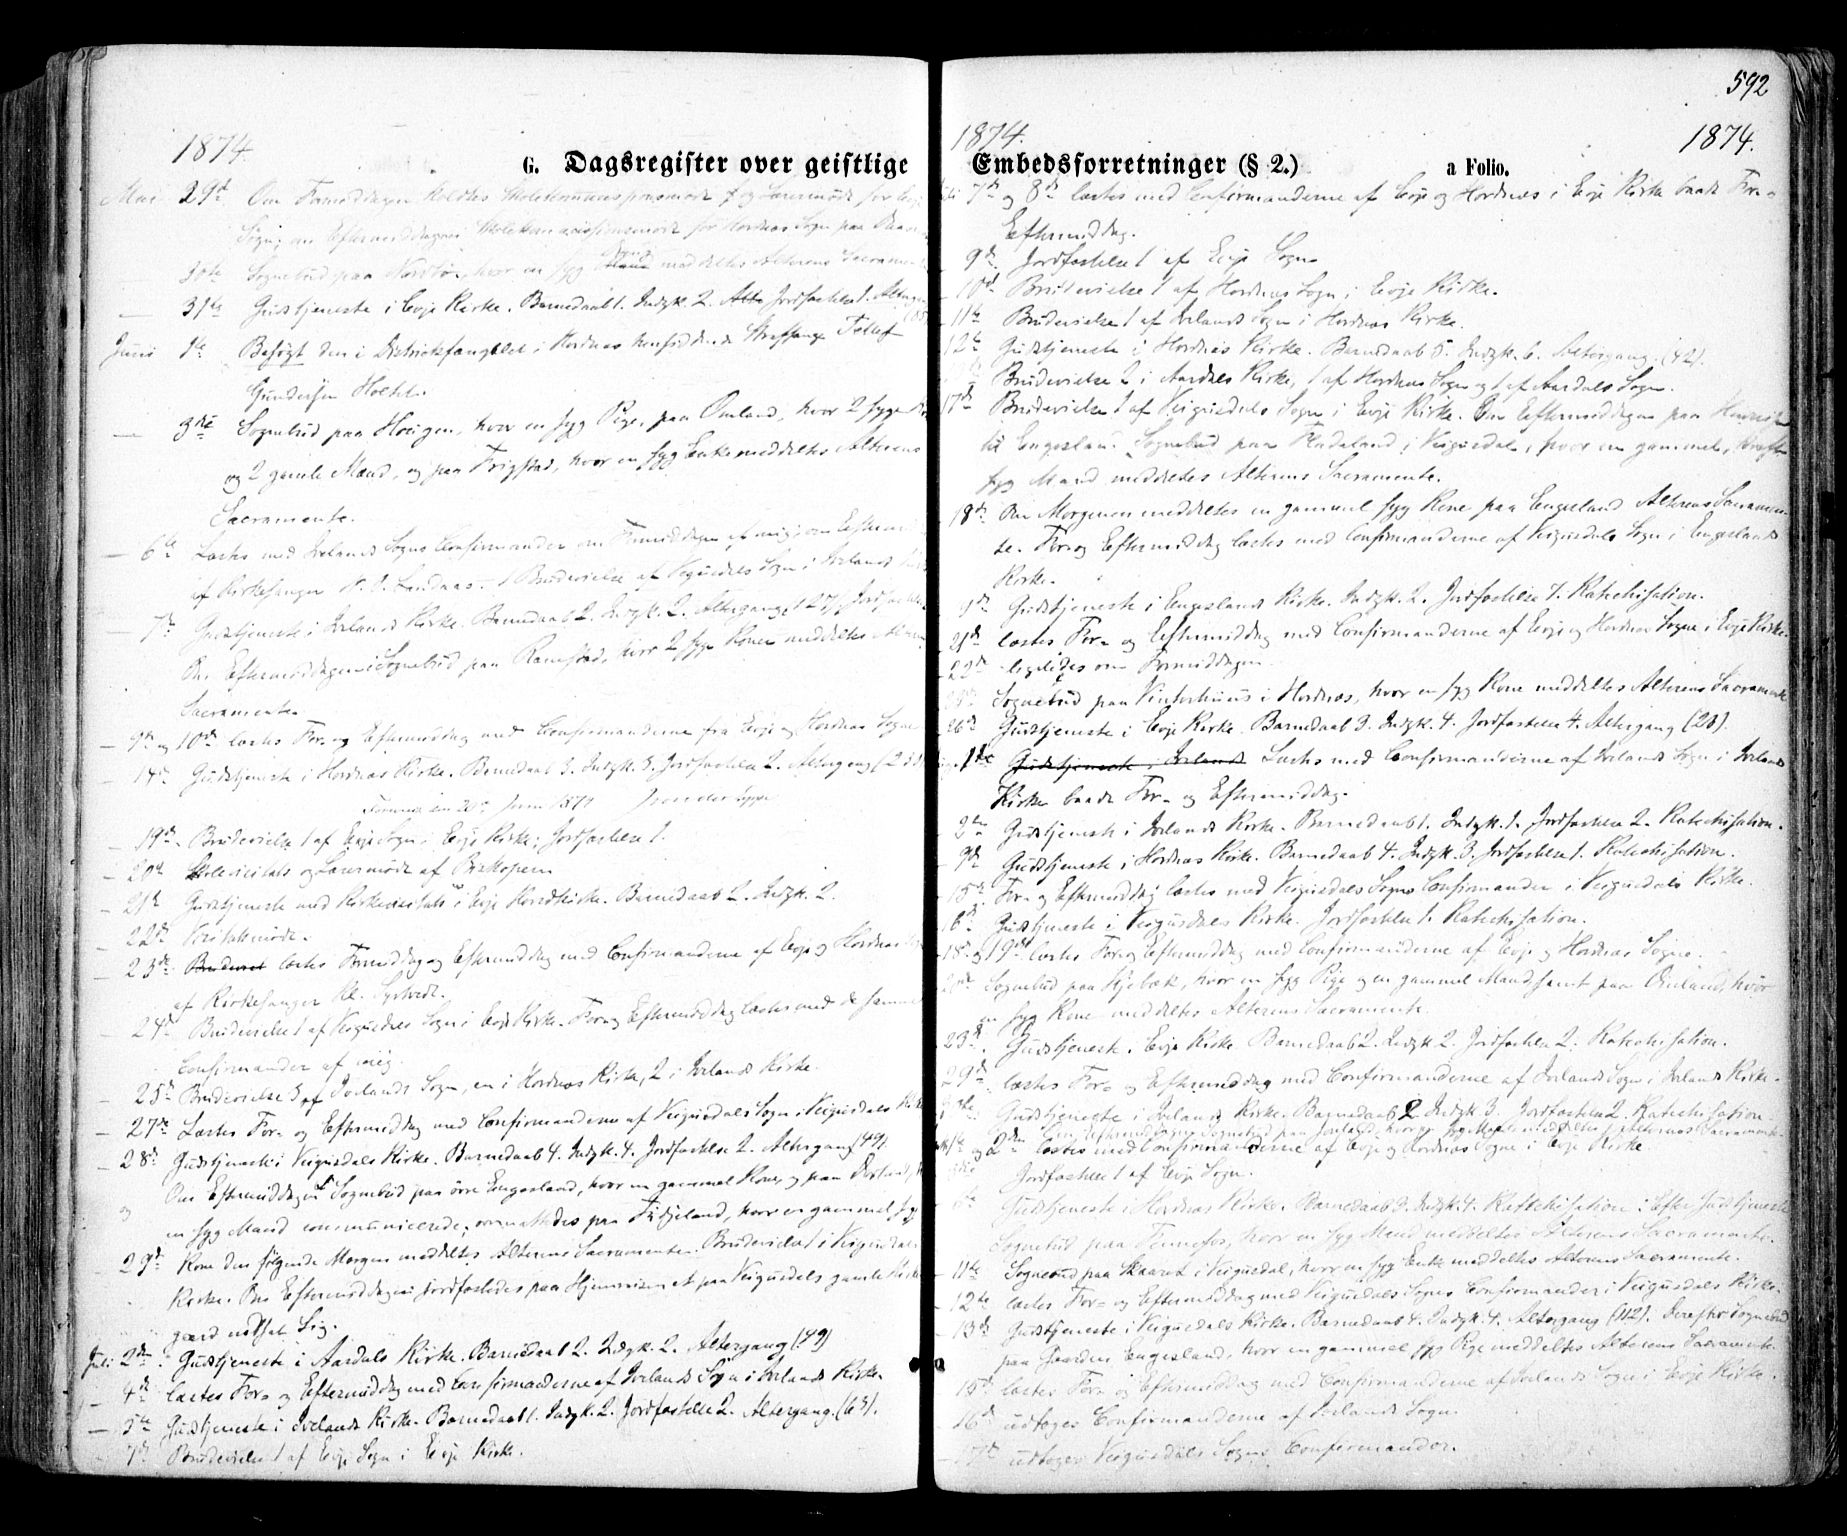 592
1874.
G. Dagsregister over geistlige
Mai 29de Om Formiddagen holdtes Skolekommissionsmøde og Læremøde for Evje
Sogn; om Eftermiddagen Skolekommissionsmøde for Hordnæs Sogn paa
30te Sognebud paa hvor en syg meddeltes Alterens Sacramente
— 31te Gudstjeneste i Evje Kirke. Barnedaab 1. Indgk. 2. Jordfæstelse 1. Altergang
Juni 1ste Besøgt den i Districtsfængslet i Hordnæs hensiddende Straffange Tellef
Gundersen Hoelte.
— 3die Sognebud paa Hougen, hvor en syg Pige, paa Omland, hvor 2 syge
og 2 gamle Mænd, og paa Frigstad, hvor en syg Enke meddeltes Alterens
Sacramente.
— 6te Læstes med Iveland Sogns Confirmander om Formiddagen af mig, om Eftermid
af Kirkesanger Brudevielse af Veigusdals Sogn i Ivelands
— 7de Gudstjeneste i Ivelands Kirke. Barnedaab 2. Indgk. 2. Altergang (27). Jordfæstelse
Om Eftermiddagen Sognebud paa Ramstad, hvor 2 syge Koner meddeltes Alterens
Sacramente.
— 9de og 10de læstes For- og Eftermiddag med Confirmanderne fra Evje og Hordnæs Sogne
— 14de Gudstjeneste i Hordnæs Kirke. Barnedaab 3. Indgk. 3. Jordfæstelse 2. Altergang
20de Juni 1874
— 19de Brudevielse 1 af Evje Sogn i Evje Kirke; Jordfæstelse 1.
— 20de Skolevisitats og Læremøde af Biskopen
— 21de Gudstjeneste med Kirkevisitats i Evje Hovedkirke. Barnedaab 2. Indgk. 2.
— 22de
— 23de læstes Formiddag og Eftermiddag med Confirmanderne af Evje og Hordnæs
af Kirkesanger
— 24de Brudevielse 1 af Veigusdals Sogn i Evje Kirke. For- og Eftermiddag læstes med de samme
Confirmander af mig.
— 25de Brudevielse 3 af Ivelands Sogn, en i Hordnæs Kirke, 2 i Ivelands Kirke.
— 27de Læstes For- og Eftermiddag med Confirmanderne af Veigusdals Sogn i Veigusdals Kirke
— 28de Gudstjeneste i Veigusdals Kirke. Barnedaab 4. Indgk. 4. Jordfæstelse 2. Altergang (49).
Om Eftermiddagen Sognebud paa øvre Engesland, hvor en gammel Kone, og paa
og en syg Mand communicerede; overnattedes paa Fidjeland, hvor en gammel syg
29de Kone den følgende Morgen meddeltes Alterens Sacramente. Brudevielse 1 i Veigusdals
Kirke. Om Eftermiddagen jordfæstedes paa et paa Veigusdals gamle Kirke-
gaard nedsat Lig.
Juli 2den Gudstjeneste i Aardals Kirke. Barnedaab 2. Indgk. 2. Altergang (49)
— 4de læstes For- og Eftermiddag med Confirmanderne af Ivelands Sogn i Ivelands Kirke.
— 5te Gudstjeneste i Ivelands Kirke. Barnedaab 1. Indgk. 2. Jordfæstelse 2. Altergang. (63).
— 7de Brudevielse 1 af Evje Sogn i Evje Kirke.
1874. 1874.
Embedsforretninger (§ 2.) a Folio.
7de og 8de læstes med Confirmanderne af Evje og Hordnæs i Evje Kirke baade For- og
Eftermiddag.
— 9de Jordfæstelse 1 af Evje Sogn
— 10de Brudevielse 1 af Hordnæs Sogn i Evje Kirke.
— 11te Brudevielse 1 af Ivelands Sogn i Hordnæs Kirke.
12te Gudstjeneste i Hordnæs Kirke. Barnedaab 5. Indgk. 6. Altergang. (42).
Brudevielse 2 i Aardals Kirke, 1 af Hordnæs Sogn og 1 af Aardals Sogn.
17de Brudevielse 1 af Veigusdals Sogn i Evje Kirke. Om Eftermiddagen paa
til Engesland. Sognebud paa Fladeland i Veigusdal, hvor en gammel,
syg Mand meddeltes Alterens Sacramente.
18de Om Morgenen meddeltes en gammel syg Kone paa Engesland Alterens Sacramen-
te. For- og Eftermiddag læstes med Confirmanderne af Veigusdals Sogn i Engeslands
Kirke.
19de Gudstjeneste i Engeslands Kirke. Indgk. 2. Jordfæstelse 1. Katechisation.
21de læstes For- og Eftermiddag med Confirmanderne af Evje og Hordnæs Sogne i Evje Kirke.
22de ligeledes om Formiddagen.
Sognebud paa Vinterhuus i Hordnæs, hvor en syg Kone meddeltes Alterens Sacramente
26de Gudstjeneste i Evje Kirke. Barnedaab 3. Indgk. 4. Jordfæstelse 4. Altergang (23).
1ste Gudstjeneste i Iveland Læstes med Confirmanderne af Ivelands Sogn i Ivelands
Kirke baade For- og Eftermiddag.
— 2den Gudstjeneste i Ivelands Kirke. Barnedaab 1. Indgk. 1. Jordfæstelse 2. Katechisation.
— 9de Gudstjeneste i Hordnæs Kirke. Barnedaab 4. Indgk. 3. Jordfæstelse 1. Katechisation.
— 15de For- og Eftermiddag læstes med Veigusdals Sogns Confirmander i Veigusdals Kirke.
16de Gudstjeneste i Veigusdals Kirke. Jordfæstelse 1. Katechisation.
— 18de og 19de læstes For- og Eftermiddag med Confirmanderne af Evje og Hordnæs Sogne.
20de Sognebud paa hvor en syg Pige og en gammel Mand samt paa Omland, hvor
en syg Kone meddeltes Alterens Sacramente.
23de Gudstjeneste i Evje Kirke. Barnedaab 2. Indgk 2. Jordfæstelse 2. Katechisation.
29de læstes For- og Eftermiddag med Confirmanderne af Ivelands Sogn i Ivelands Kirke.
Gudstjeneste i Ivelands Kirke. Barnedaab 2 Indgk 3. Jordfæstelse 2. Katechisation.
om Eftermiddagen Sognebud paa hvor en syg meddeltes Alterens Sacramente.
1ste og 2den læstes med Confirmanderne af Evje og Hordnæs Sogne i Evje Kirke
Jordfæstelse 1 af Evje Sogn.
Gudstjeneste i Hordnæs Kirke. Barnedaab 3. Indgk. 4. Katechisation. Efter Gudstjenesten
Sognebud paa Fennefos, hvor en syg Mand meddeltes Alterens Sacramente.
— 11te Sognebud paa Skaaret i Veigusdal, hvor en syg Enke meddeltes Alterens Sacramente.
— 12te læstes For- og Eftermiddag med Veigusdals Sogns Confirmander i Veigusdals Kirke.
— 13de Gudstjeneste i Veigusdals Kirke. Barnedaab 4. Indgk. 4. Altergang (112). Derefter Sognebud
paa Gaarden Engesland, hvor en gammel syg Pige meddeltes Alterens Sacramente.
— 15de læstes For- og Eftermiddag med Confirmanderne af Ivelands Sogn i Evje Kirke.
— 16de udtoges Confirmanderne af Ivelands Sogn.
— 17de udtoges Veigusdals Sogns Confirmander.